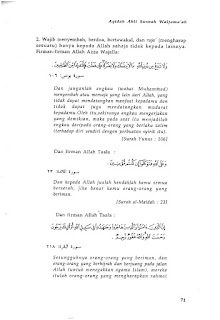 Aqidah Ahli Sunnah Waljama'ah
2. Wajib menyembah, berdoa, bertawakkal, dan raja' (mengharap
sesuatu) hanya kepada Allah sahaja tidak kepada lainnya.
Firman-firman Allah Azza Wajalla:
سورة يونس: ١٠٦
Dan janganlah engkau (wahai Muhammad)
menyembah atau memuja yang lain dari Allah, yang
tidak dapat mendatangkan manfaat kepadamu dan
tidak dapat juga mendatangkan mudarat
kepadamu. Oleh itu, sekiranya engkau mengerjakan
yang demikian, maka pada saat itu menjadilah
engkau daripada orang-orang yang berlaku zalim
(terhadap diri sendiri dengan perbuatan syirik itu).
[Surah Yunus : 106]
Dan firman Allah Taala :
سورة المائدة: ٢٣
Dan kepada Allah jualah hendaklah kamu semua
berserah, jika benar kamu orang-orang yang
beriman.
[Surah al-Maidah : 23]
Dan firman Allah Taala :
سورة البقرة: ٢١٨
Sesungguhnya orang-orang yang beriman, dan
orang-orang yang berhijrah dan berjuang pada jalan
Allah (untuk menegakkan agama Islam), mereka
itulah orang-orang yang mengharapkan rahmat
71